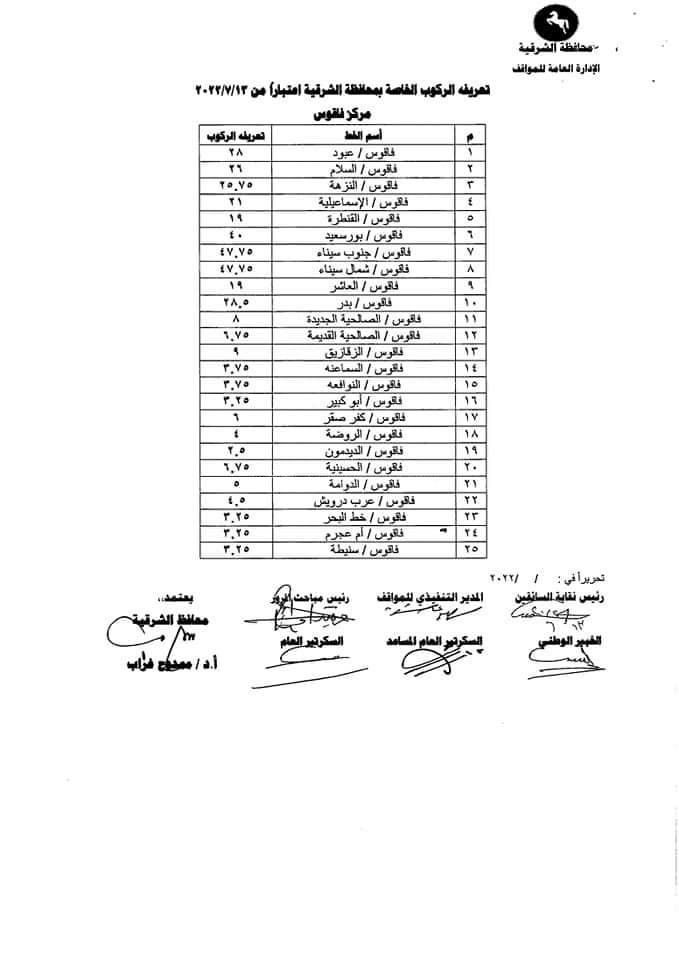 محافظة الشرقية
الإدارة العامة للمواقف
تعريفه الركوب الخاصة بمحافظة الشرقية اعتباراً من ٢٠٢٢/٧/١٣
مركز فاقوس
م أسم الخط تعريفه الركوب
١ فاقوس / عبود ٢٨
٢ فاقوس / السلام ٢٦
٣ فاقوس / النزهة ٢٥,٧٥
٤ فاقوس / الإسماعيلية ٢١
٥ فاقوس / القنطرة ١٩
٦ فاقوس / بورسعيد ٤٠
٧ فاقوس / جنوب سيناء ٤٧,٧٥
٨ فاقوس / شمال سيناء ٤٧,٧٥
٩ فاقوس / العاشر ١٩
١٠ فاقوس / بدر ٢٨,٥
١١ فاقوس / الصالحية الجديدة ٨
١٢ فاقوس / الصالحية القديمة ٦,٧٥
١٣ فاقوس / الزقازيق ٩
١٤ فاقوس / السماعنه ٣,٧٥
١٥ فاقوس / النوافعه ٣,٧٥
١٦ فاقوس / أبو كبير ٣,٢٥
١٧ فاقوس / كفر صقر ٦
١٨ فاقوس / الروضة ٤
١٩ فاقوس / الديدمون ٢,٥
٢٠ فاقوس / الحسينية ٦,٧٥
٢١ فاقوس / الدوامة ٥
٢٢ فاقوس / عرب درويش ٤,٥
٢٣ فاقوس / خط البحر ٣,٢٥
٢٤ فاقوس / أم عجرم ٣,٢٥
٢٥ فاقوس / سنيطة ٣,٢٥
تحريراً في : / /٢٠٢٢
رئيس نقابة السائقين المدير التنفيذي للمواقف رئيس مباحث المرور يعتمد,,
محافظ الشرقية
الخبير الوطني السكرتير العام المساعد السكرتير العام
أ.د / ممدوح غراب